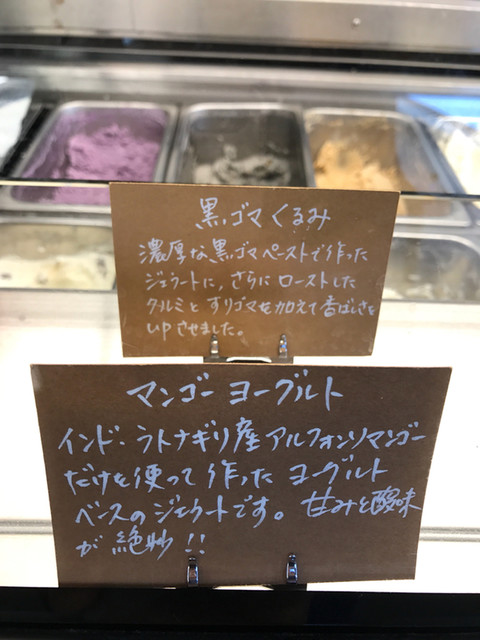 黒ゴマくるみ
濃厚な黒ゴマペーストで作った
ジェラートに、さらにローストした
クルミとすりゴマを加えて香ばしさを
UPさせました。
マンゴーヨーグルト
インド・ラトナギリ産アルフォンソマンゴー
だけを使って作ったヨーグルト
ベースのジェラートです。甘みと酸味
が絶妙!!